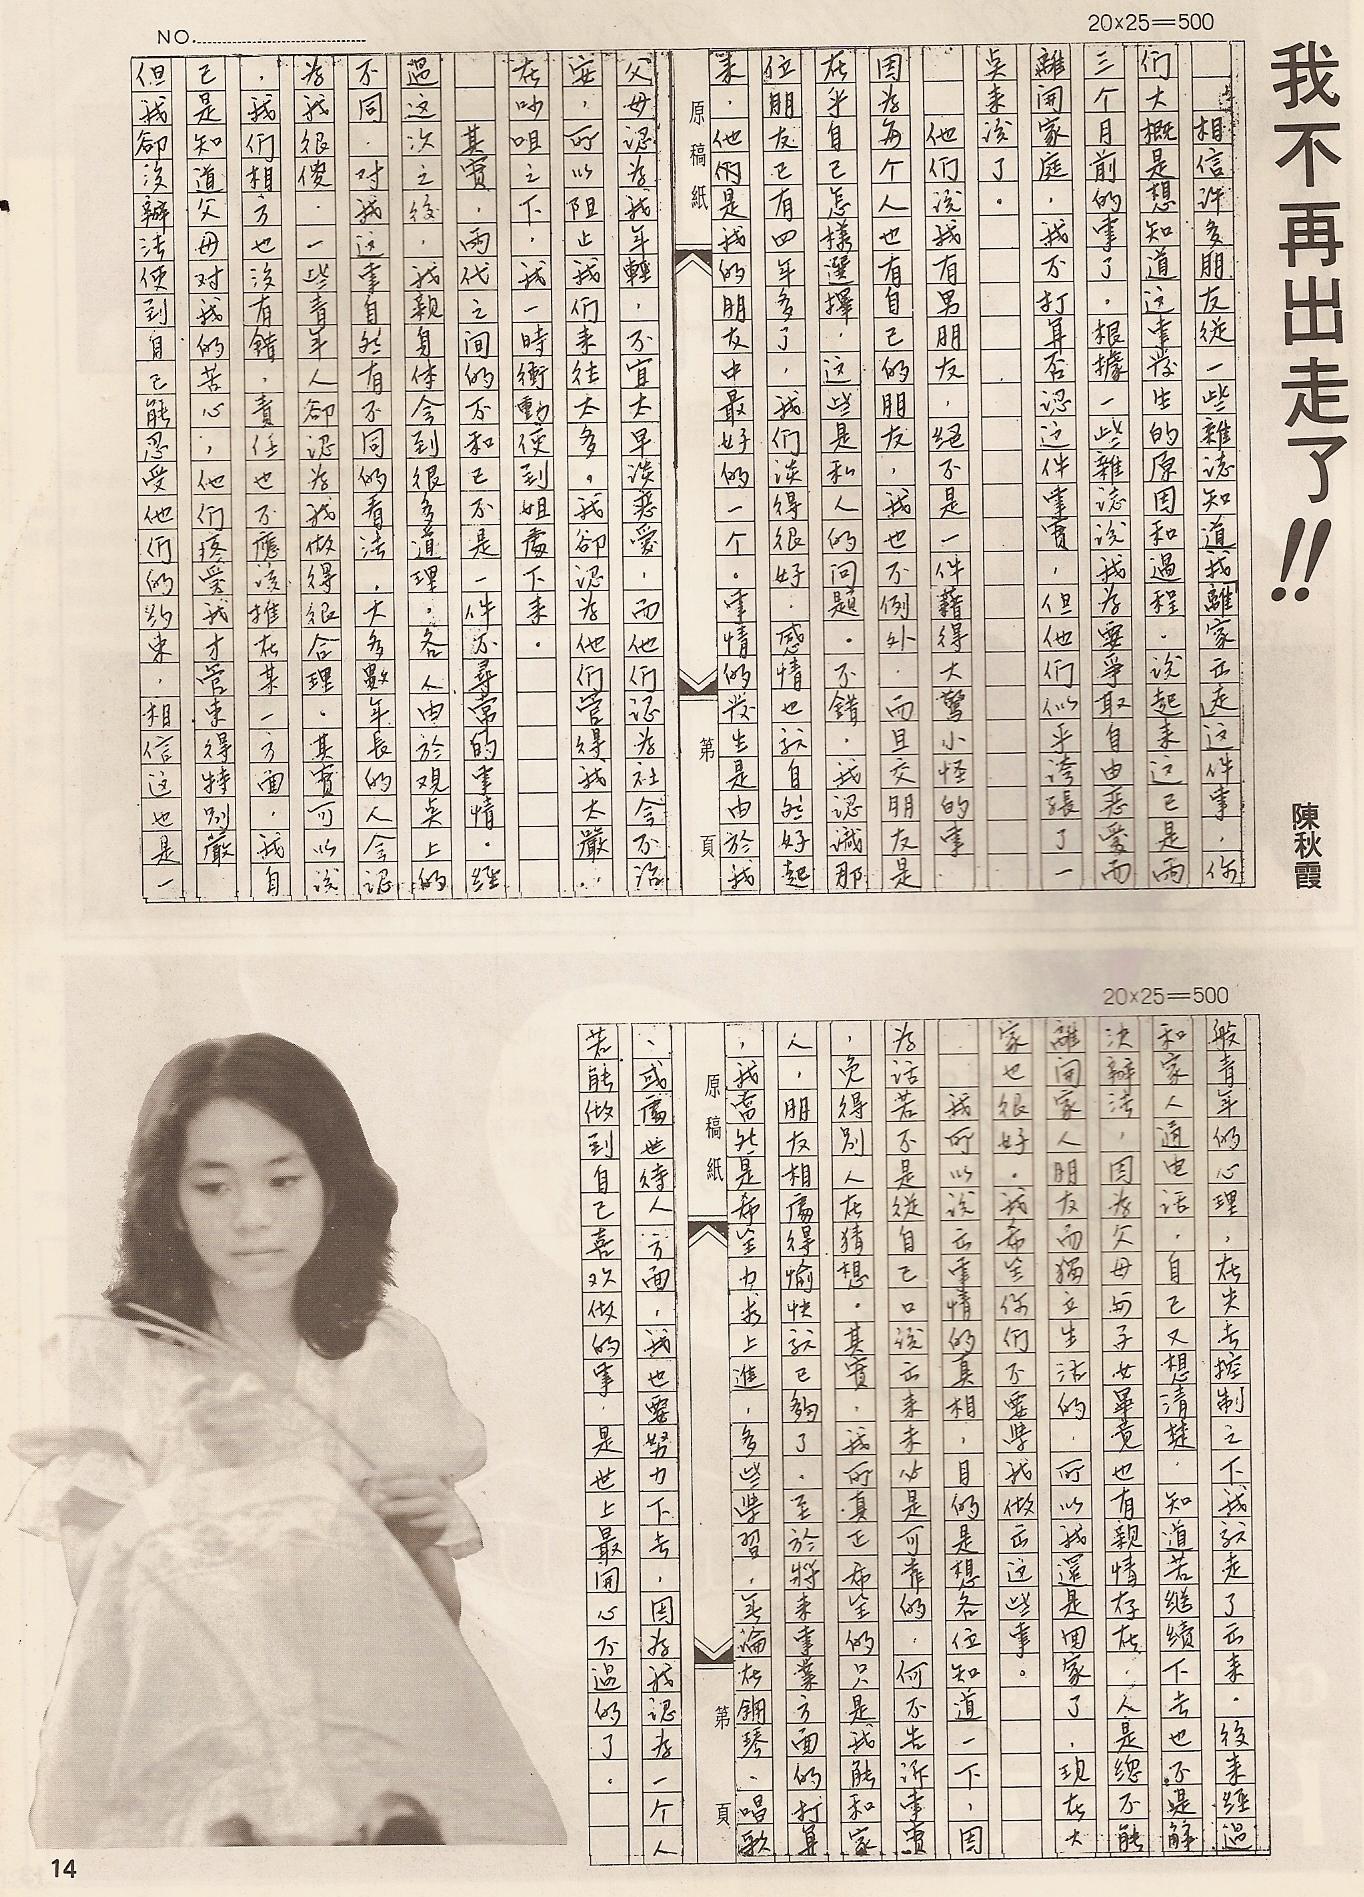 我不再出走了!!
陳秋霞
20×25=500
NO.
相信许多朋友從一些雜志知道我「離家出走这件事,你
们大概是想知道这事发生的原因和過程.说起来这已是兩
三个月前的事了.根據一些雜誌说我为要爭取自由恋爱而
離開家庭,我不打算否認这件事實,但他们似乎誇張了一
点来说了。
他们说我有男朋友,絕不是一件藉得大驚小怪的事
因为每个人也有自己的朋友,我也不例外.而且交朋友是
在乎自己怎樣選擇.这些是私人的问題.不錯,我認識那
位朋友已有四年多了,我们谈得很好.感情也就自然好起
来,他倆是我的朋友中最好的一个。事情的发生是由於我
原稿紙
第 頁
父母認为我年輕,不宜太早谈恋爱,而他们認为社会不治
安,所以阻止我们来往太多。我卻認为他们管得我太嚴.
在吵咀之下,我一時衝動便到姐處下来.
其實,兩代之间的不和已不是一件不尋常的事情.經
過这次之後,我親身体会到很多道理.各人由於观点上的
不同.对我这事自然有不同的看法,大多數年長的人会認
为我很傻.一些青年人卻認为我做得很合理.其實可以说
,我们相方也没有錯,責任也不應该推在某一方面,我自
己是知道父母对我的苦心,他们疼爱我才管束得特别嚴
但我卻没辦法使到自己能忍受他们的约束,相信这也是一
20×25=500
般青年的心理,在失去控制之下我就走了出来.後来經過
和家人通电话,自己又想清楚.知道若继續下去也不是解
決辦法,因为父母与子女畢竟也有親情存在.人是總不能
離開家人朋友而獨立生活的.所以我還是回家了.現在大
家也很好.我希望你们不要學我做出这些事。
我所以说出事情的真相,目的是想各位知道一下,因
为话若不是從自己口说出来未必是可靠的.何不告訴事實
,免得别人在猜想.其實,我所真正希望的只是我能和家
人,朋友相處得愉快就已夠了.至於將来事業方面的打算
,我當然是希望力求上進,多些學習,無論在鋼琴、唱歌
原稿紙
第 頁
、或處世待人方面,我也要努力下去,因为我認为一个人
若能做到自己喜欢做的事.是世上最開心不過的了.
14